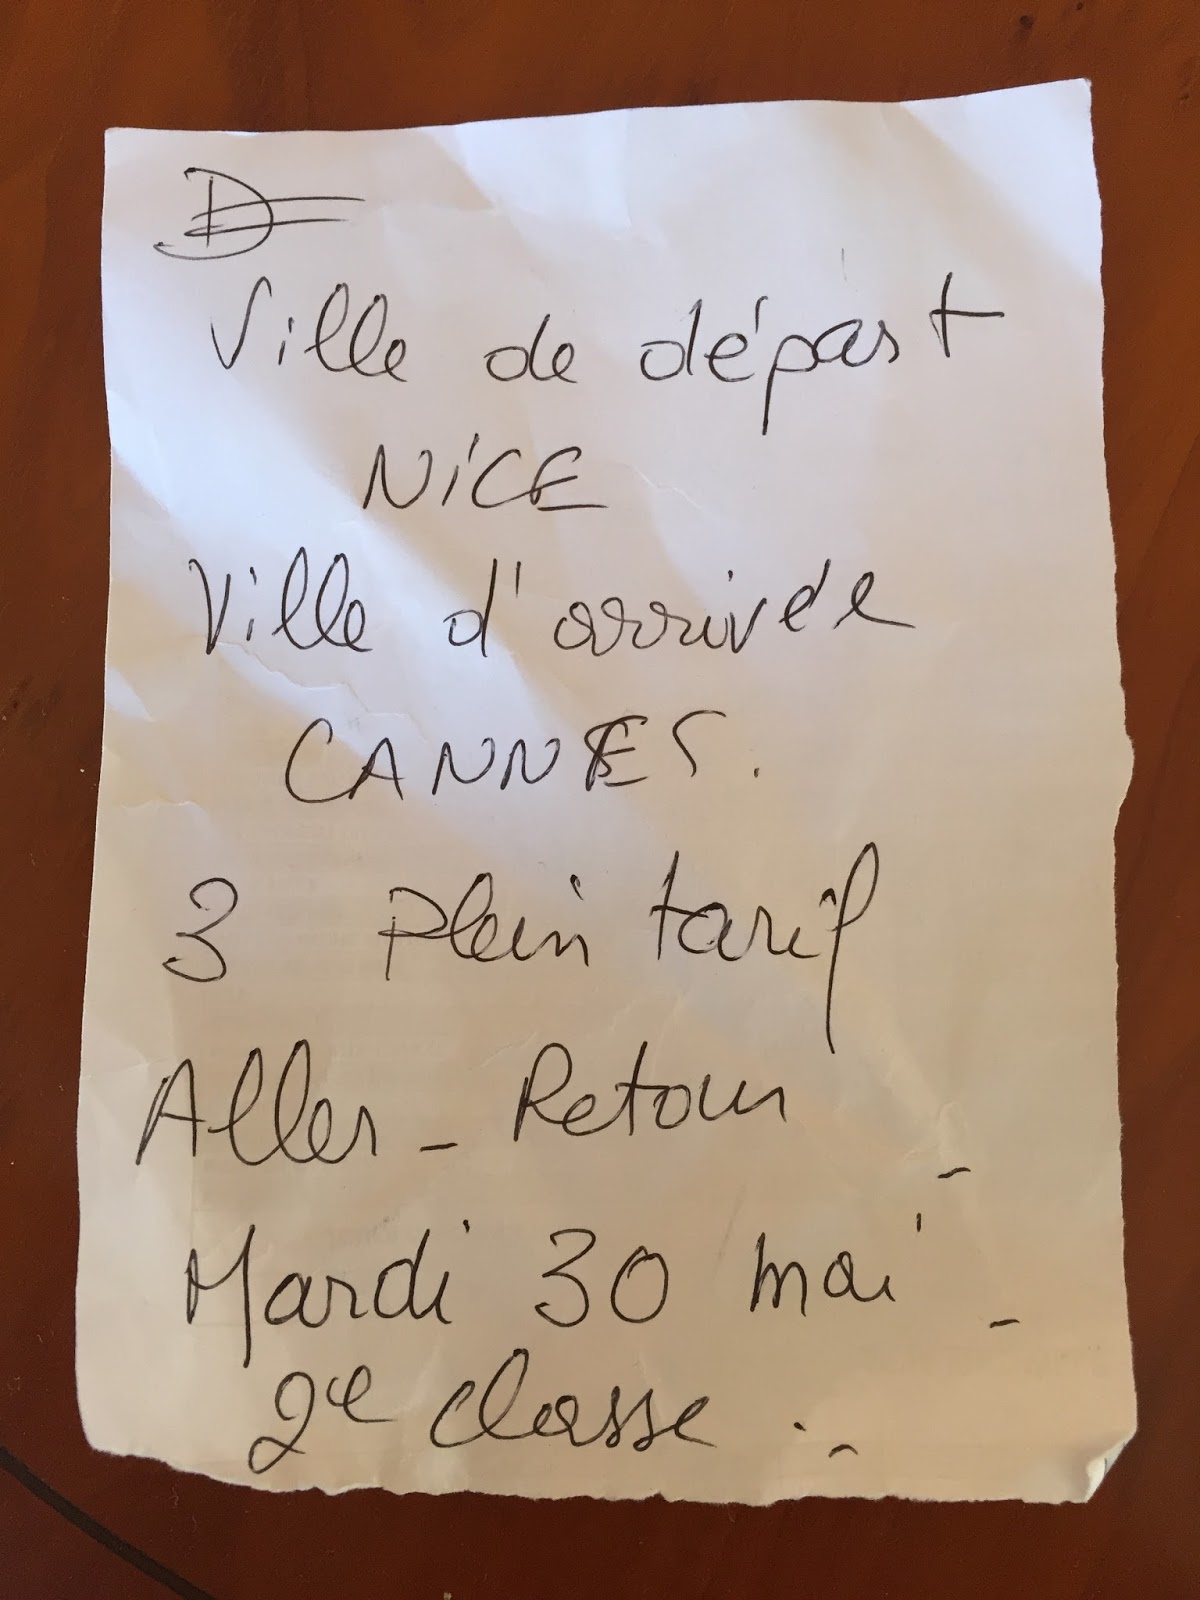 Ville de départ
NiCE
Ville d'arrivée
CANNES.
3 Plein tarif
Aller - Retour -
Mardi 30 mai -
2e classe . -